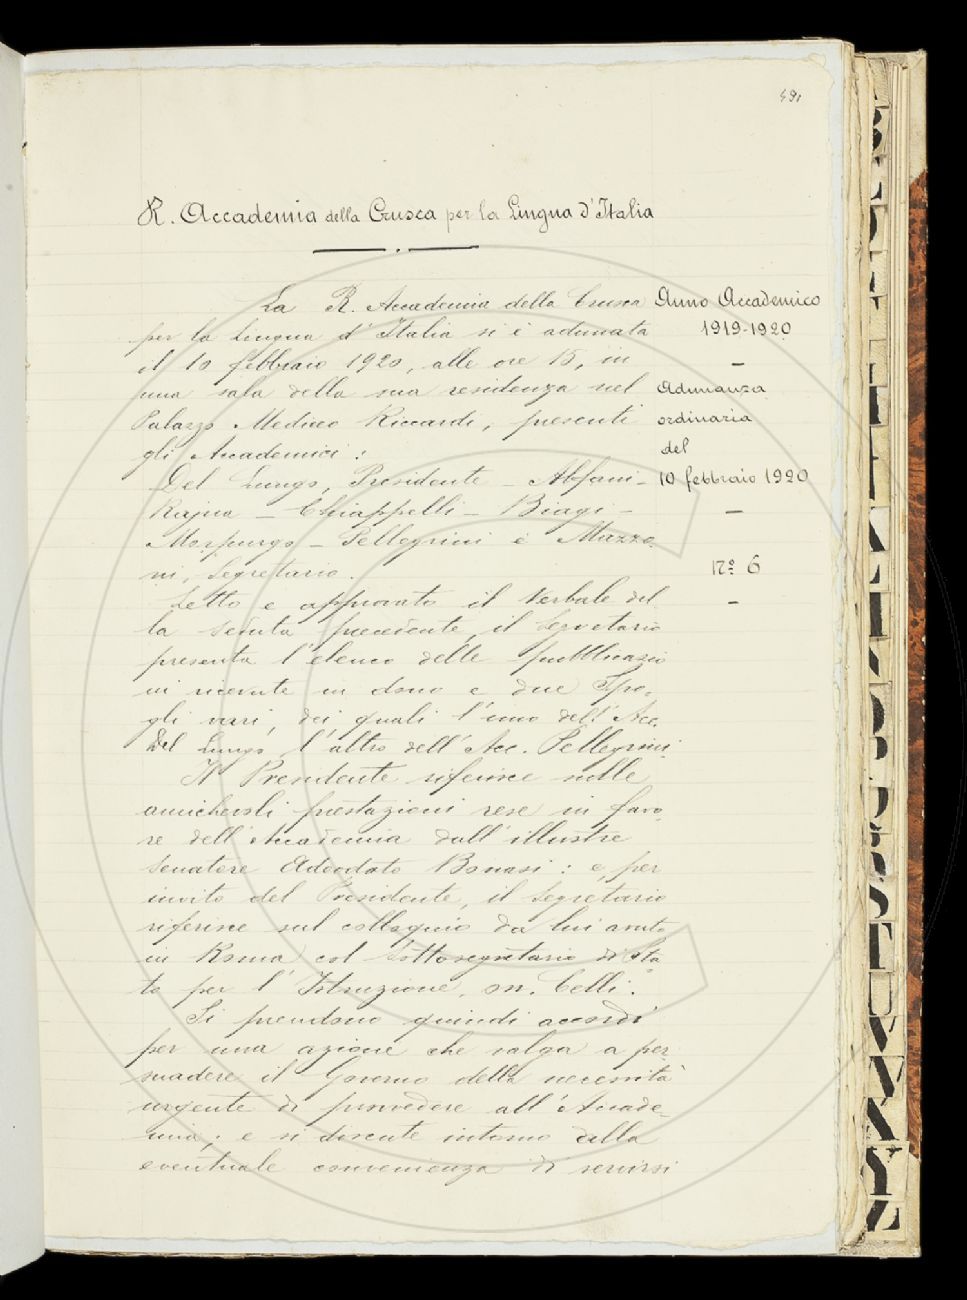 491
R. Accademia della Crusca per la Lingua d'Italia
La R. Accademia della Crusca
per la Lingua d'Italia si è adunata
il 10 febbraio 1920, alle ore 15, in
una sala della sua residenza nel
Palazzo Mediceo Riccardi, presenti
gli Accademici:
Del Lungo, Presidente - Alfani -
Rajna - Chiappelli - Biagi -
Morpurgo - Pellegrini e Mazzo
ni, Segretario.
Letto e approvato il Verbale del
la seduta precedente, il Segretario
presenta l'elenco delle pubblicazio
ni ricevute in dono e due Spo-
gli vari, dei quali l'uno dell'Acc.
Del Lungo l'altro dell'Acc. Pellegrini.
Il Presidente riferisce sulle
amichevoli prestazioni rese in favo
re dell'Accademia dall'illustre
Senatore Adeodato Bonasi: e, per
invito del Presidente, il Segretario
riferisce sul colloquio da lui avuto
in Roma col Sottosegretario di Sta
to per l'Istruzione, on. Celli.
Si prendono quindi accordi
per una azione che valga a per
suadere il Governo della necessità
urgente di provvedere all'Accade-
mia; e si discute intorno alla
eventuale convenienza di servirsi
Anno Accademico
1919-1920
-
Adunanza
ordinaria
del
10 febbraio 1920
-
N.º 6
-
B
C
D
K
L
O
P
Q
R
S
T
U
V
W
X
Y
Z